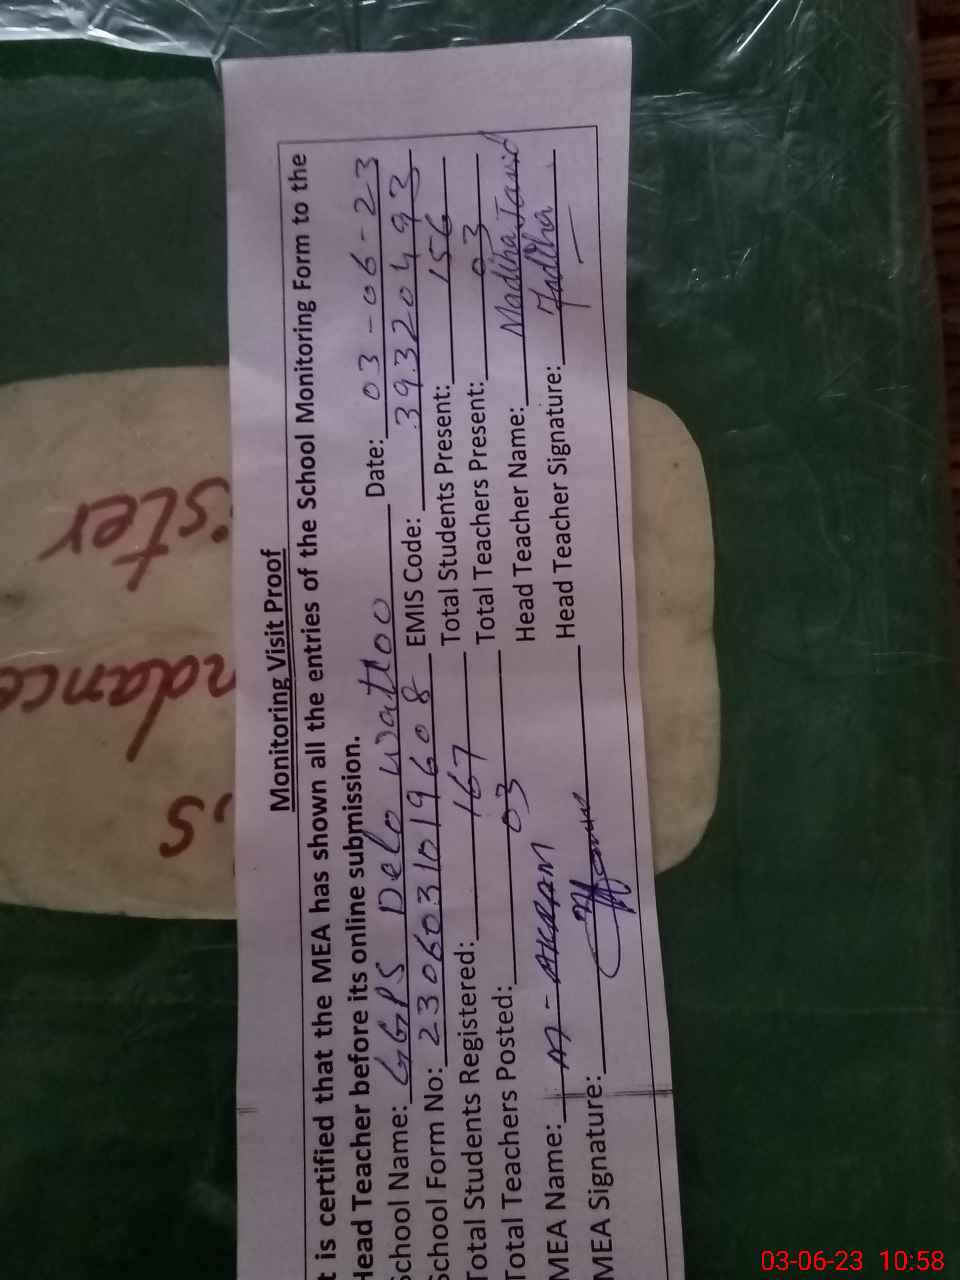 Monitoring Visit Proof
t is certified that the MEA has shown all the entries of the School Monitoring Form to the
Head Teacher before its online submission.
School Name: GGPS Delo Wattoo Date: 03-06-23
School Form No: 2306031019608 EMIS Code: 39320493
Total Students Registered: 167 Total Students Present: 156
Total Teachers Posted: 03 Total Teachers Present: 03
MEA Name: M-AKRAM Head Teacher Name: Madiha Javid
MEA Signature: Head Teacher Signature: Madiha
ister
ndance
S.
03-06-23 10:58